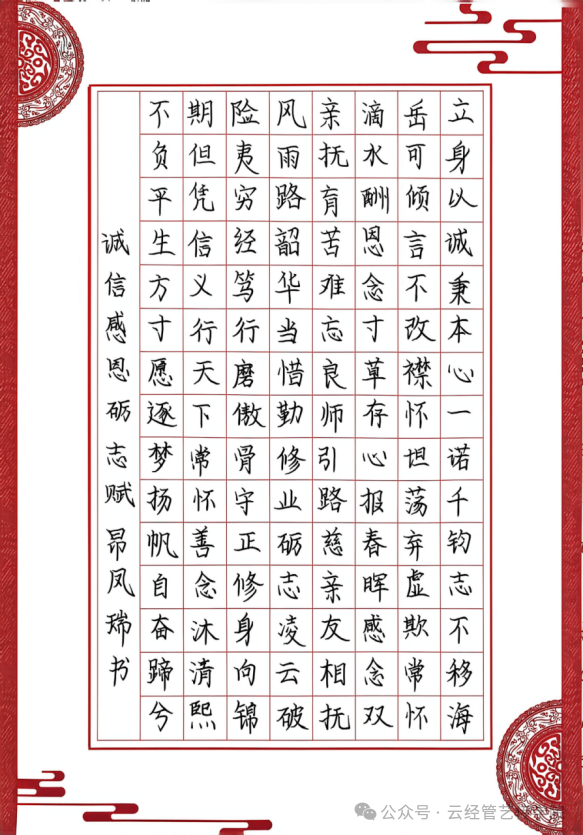 立身以诚秉本心一诺千钧志不移海
岳可倾言不改襟怀坦荡弃虚欺常怀
滴水酬恩念寸草存心报春晖感念双
亲抚育苦难忘良师引路慈亲友相抚
风雨路韶华当惜勤修业砺志凌云破
险夷穷经笃行磨傲骨守正修身向锦
期但凭信义行天下常怀善念沐清熙
不负平生方寸愿逐梦扬帆自奋蹄兮
诚信感恩砺志赋昂凤瑞书
公众号·云经管艺